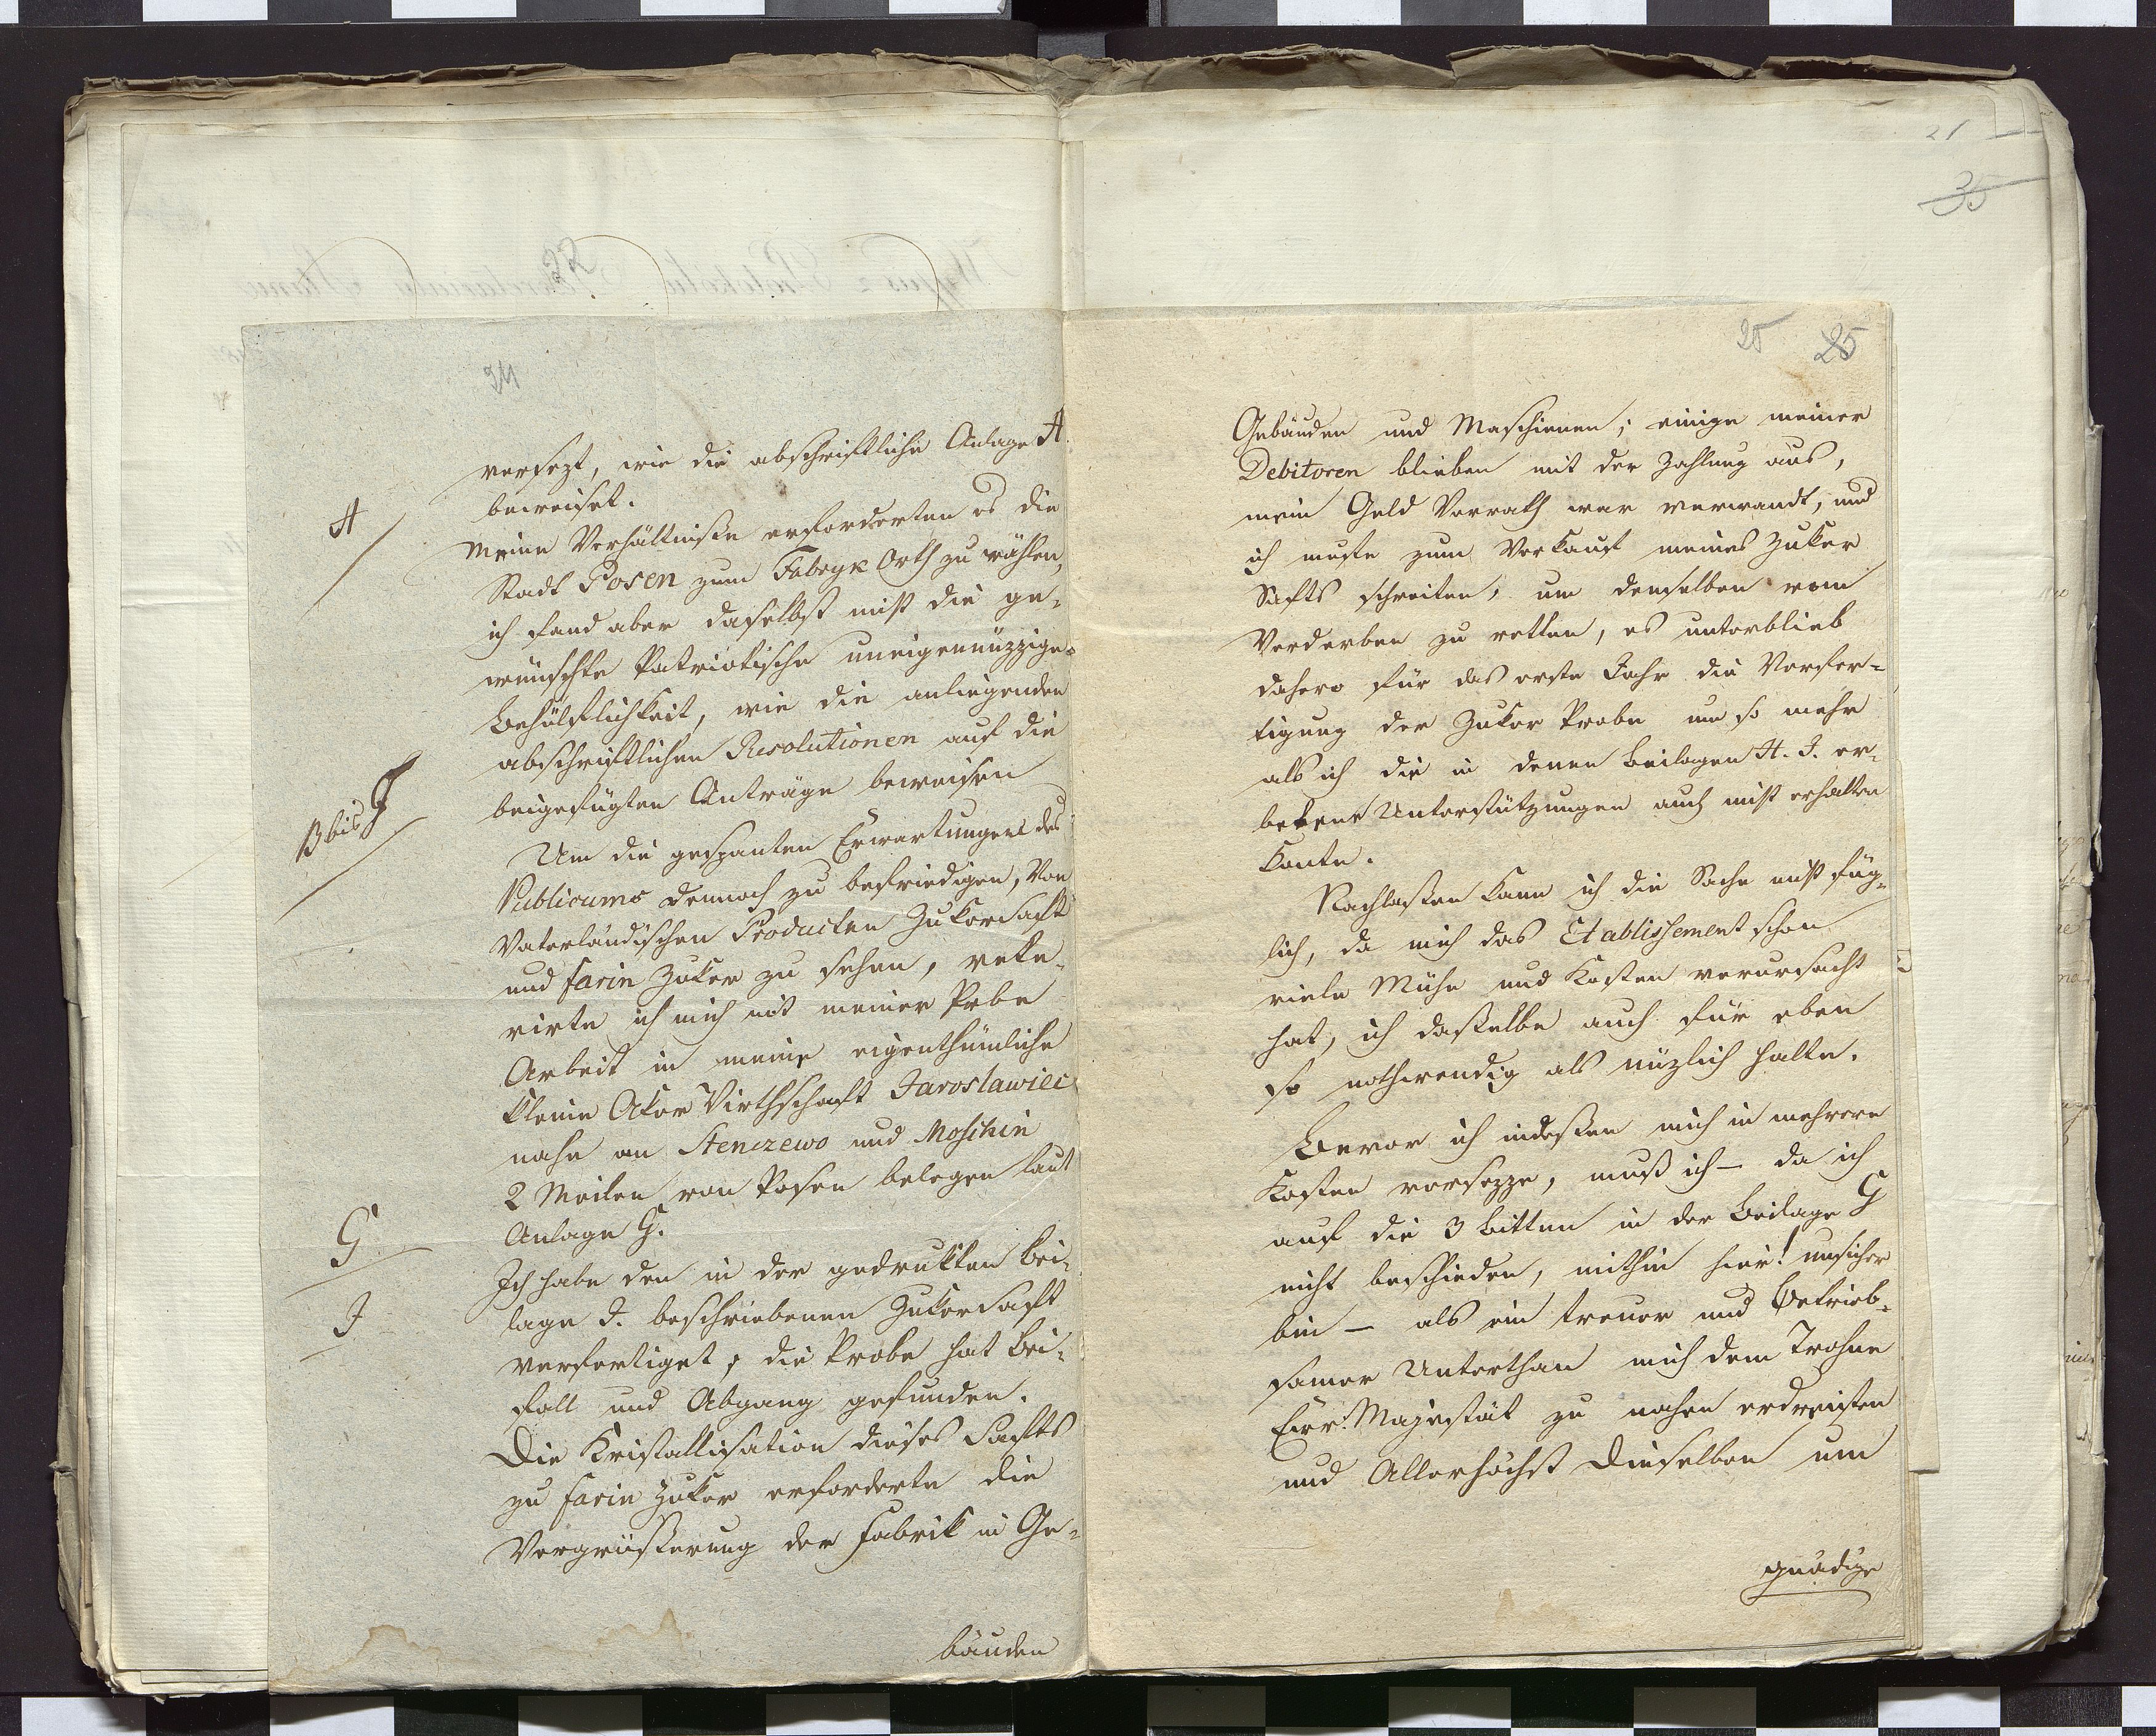 24
versezt, wie die abschriftliche Anlage A.
beweiset.
A
Meine Verhältniße erforderten es die
Stadt Posen zum Fabryk Orth zu wählen,
ich fand aber daselbst nicht die ge-
wünschte Patriotische uneigennüzzige
Behülflichkeit, wie die anliegenden
abschriftlichen Resolutionen auf die
beigefügten Anträge beweisen
B bis F
Um die gespanten Erwartungen des
Publicums dennoch zu befriedigen, von
Vaterländischen Producten Zukersaft
und farin Zuker zu sehen, rete-
rirte ich mich mit meiner Probe
Arbeit in meine eigenthümliche
kleine Aker Wirthschaft Jaroslawiec
nahe an Stenczewo und Moschin
2 Meilen von Posen belegen laut
Anlage G.
G
Ich habe den in der gedrukten Bei-
lage J. beschriebenen Zukersaft
J
verfertiget, die Probe hat Bei-
fall und Abgang gefunden.
Die Kristallisation dieses Safts
zu farin Zuker erforderte die
Vergrößerung der Fabrik in Ge-
bäuden
21
35
25 25
Gebäuden und Maschienen; einige meiner
Debitoren blieben mit der Zahlung aus,
mein Geld Vorrath war verwandt, und
ich muste zum Verkauf meines Zuker
Safts schreiten, um denselben vom
Verderben zu retten, es unterblieb
dahero für das erste Jahr die Verfer-
tigung der Zuker Probe um so mehr
als ich die in denen Beilagen H. J. er-
betene Unterstützungen auch nicht erhalten
konte.
Nachlaßen kann ich die Sache nicht füg-
lich, da mich das Etablissement schon
viele Mühe und Kosten verursacht
hat, ich daßelbe auch für eben
so nothwendig als nüzlich halte.
Bevor ich indeßen mich in mehrere
Kosten versezze, muß ich - da ich
auf die 3 Bitten in der Beilage G
nicht beschieden, mithin hier! unsicher
bin - als ein treuer und Betrieb-
samer Unterthan mich dem Trohne
Eur. Majestät zu nahen erdreisten
und Allerhöchst Dieselben um
gnädige